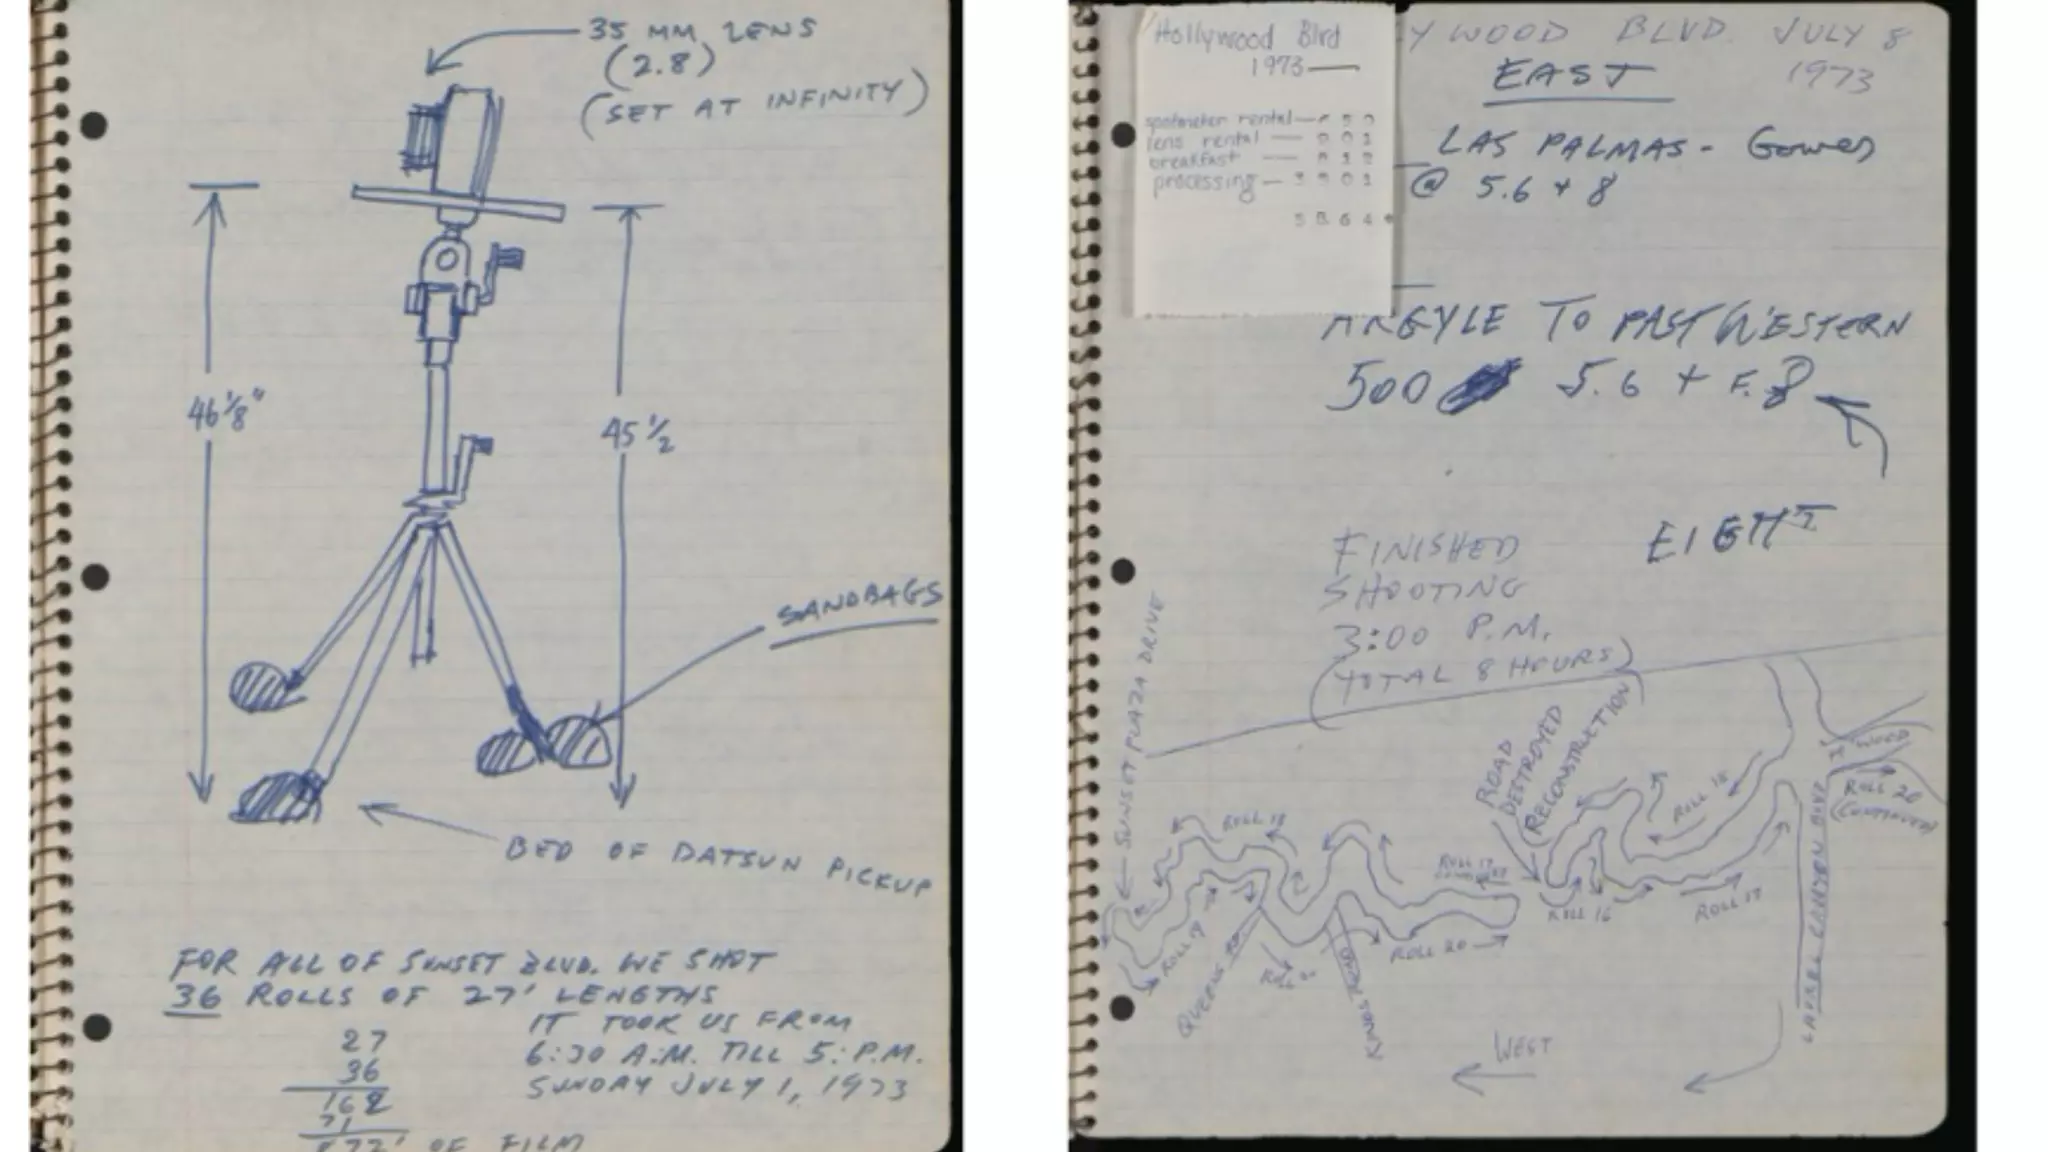 35 MM LENS
(2.8)
(SET AT INFINITY)
46 1/8"
45 1/2
SANDBAGS
BED OF DATSUN PICKUP
FOR ALL OF SUNSET BLVD. WE SHOT
36 ROLLS OF 27' LENGTHS
IT TOOK US FROM
6:30 A.M. TILL 5: P.M.
SUNDAY JULY 1, 1973
27
36
162
OF FILM
Hollywood Blvd
1973
spotmeter rental
lens rental
breakfast
processing
YWOOD BLVD. JULY 8
EAST 1973
LAS PALMAS - Gower
@ 5.6 + 8
ARGYLE TO PAST WESTERN
500 5.6 + F.8
EIGHT
FINISHED
SHOOTING
3:00 P.M.
(TOTAL 8 HOURS)
SUNSET PLAZA DRIVE
ROAD
DESTROYED
(RECONSTRUCTION)
WOOD
ROLL 20
(CONTINUED)
ROLL 18
ROLL 17
ROLL 16
ROLL 17
ROLL 19
ROLL 20
QUEENS RD
KINGS ROAD
LAUREL CANYON BLVD
WEST